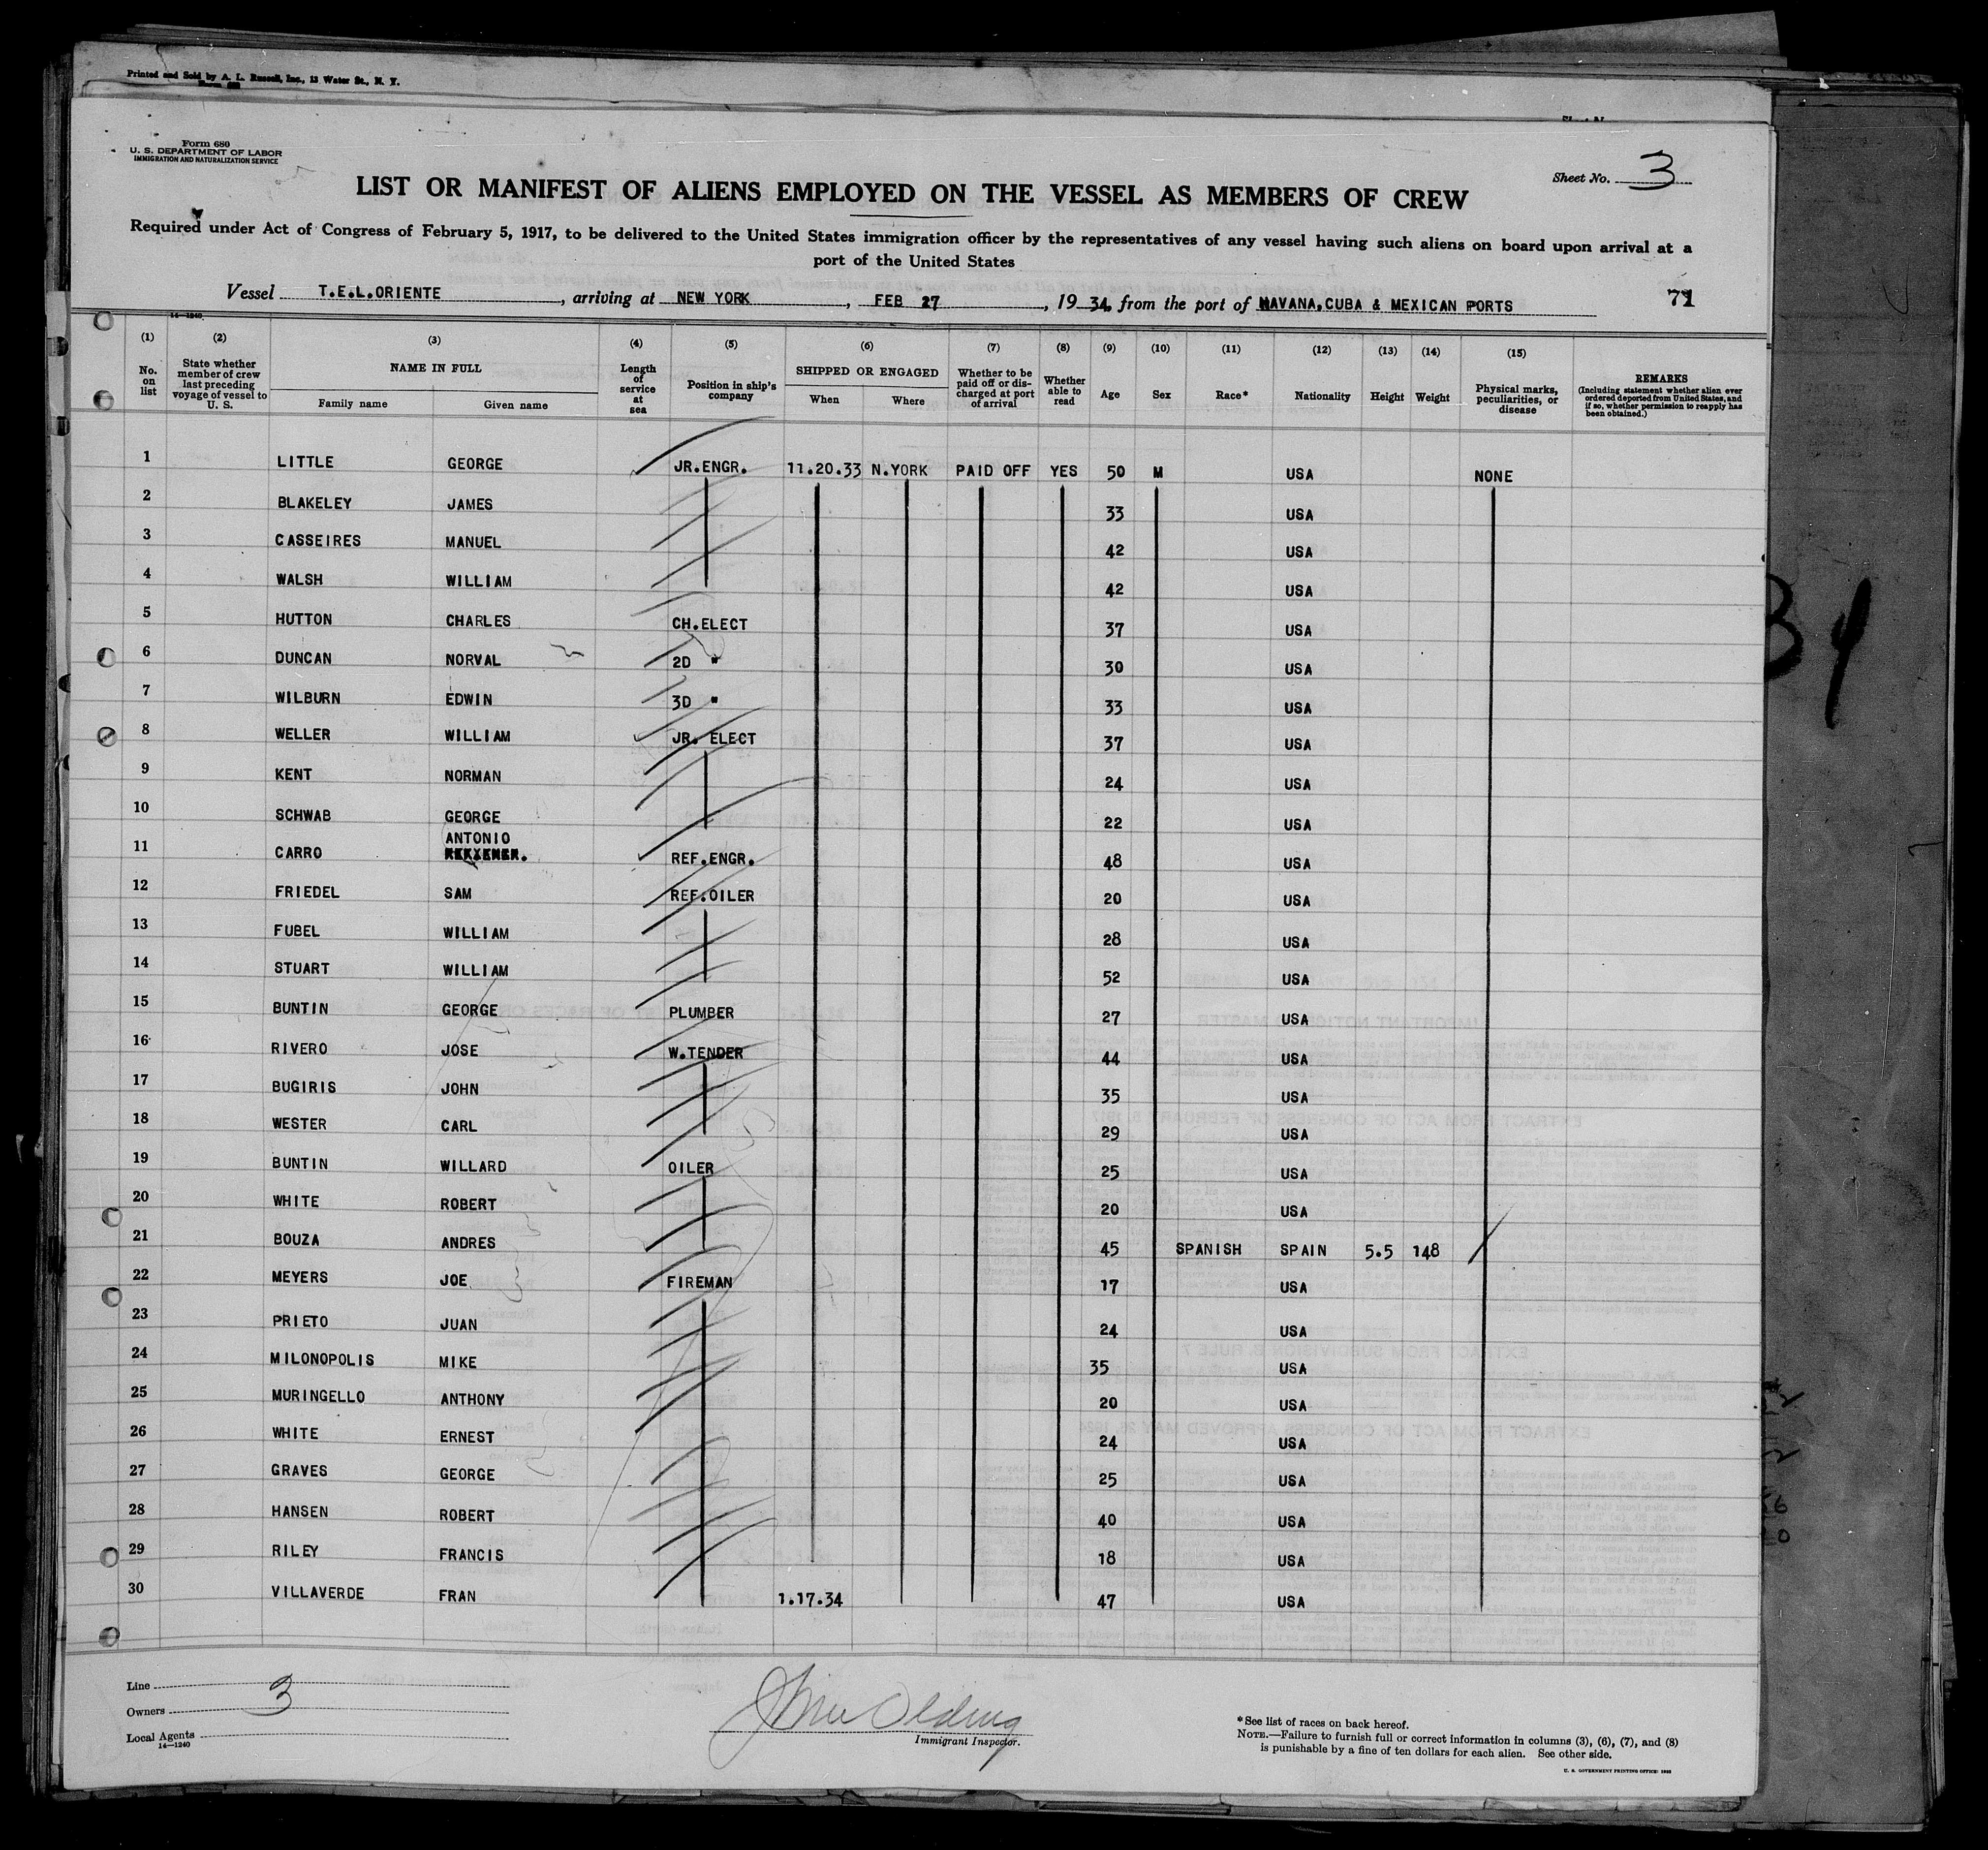 Printed and Sold by A. L. Russell, Inc., 13 Water St., N. Y.
Form 680
U. S. DEPARTMENT OF LABOR
IMMIGRATION AND NATURALIZATION SERVICE
Sheet No. 3
LIST OR MANIFEST OF ALIENS EMPLOYED ON THE VESSEL AS MEMBERS OF CREW
Required under Act of Congress of February 5, 1917, to be delivered to the United States immigration officer by the representatives of any vessel having such aliens on board upon arrival at a
port of the United States
Vessel T.E.L.ORIENTE, arriving at NEW YORK, FEB 27, 19 34, from the port of HAVANA,CUBA & MEXICAN PORTS 71
14—1240
(1) (2) (3) (4) (5) (6) (7) (8) (9) (10) (11) (12) (13) (14) (15)
No. on list
State whether member of crew last preceding voyage of vessel to U. S.
NAME IN FULL
Family name Given name
Length of service at sea
Position in ship's company
SHIPPED OR ENGAGED
When Where
Whether to be paid off or discharged at port of arrival
Whether able to read
Age Sex Race* Nationality Height Weight
Physical marks, peculiarities, or disease
REMARKS
(Including statement whether alien ever ordered deported from United States, and if so, whether permission to reapply has been obtained.)
1 LITTLE GEORGE JR.ENGR. 11.20.33 N.YORK PAID OFF YES 50 M USA NONE
2 BLAKELEY JAMES 33 USA
3 CASSEIRES MANUEL 42 USA
4 WALSH WILLIAM 42 USA
5 HUTTON CHARLES CH.ELECT 37 USA
6 DUNCAN NORVAL 2D " 30 USA
7 WILBURN EDWIN 3D " 33 USA
8 WELLER WILLIAM JR. ELECT 37 USA
9 KENT NORMAN 24 USA
10 SCHWAB GEORGE 22 USA
11 CARRO ANTONIO REF.ENGR. 48 USA
12 FRIEDEL SAM REF.OILER 20 USA
13 FUBEL WILLIAM 28 USA
14 STUART WILLIAM 52 USA
15 BUNTIN GEORGE PLUMBER 27 USA
16 RIVERO JOSE W.TENDER 44 USA
17 BUGIRIS JOHN 35 USA
18 WESTER CARL 29 USA
19 BUNTIN WILLARD OILER 25 USA
20 WHITE ROBERT 20 USA
21 BOUZA ANDRES 45 SPANISH SPAIN 5.5 148
22 MEYERS JOE FIREMAN 17 USA
23 PRIETO JUAN 24 USA
24 MILONOPOLIS MIKE 35 USA
25 MURINGELLO ANTHONY 20 USA
26 WHITE ERNEST 24 USA
27 GRAVES GEORGE 25 USA
28 HANSEN ROBERT 40 USA
29 RILEY FRANCIS 18 USA
30 VILLAVERDE FRAN 1.17.34 47 USA
Line
Owners 3
Local Agents
14—1240
Immigrant Inspector.
*See list of races on back hereof.
NOTE.—Failure to furnish full or correct information in columns (3), (6), (7), and (8)
is punishable by a fine of ten dollars for each alien. See other side.
U. S. GOVERNMENT PRINTING OFFICE: 1933
34